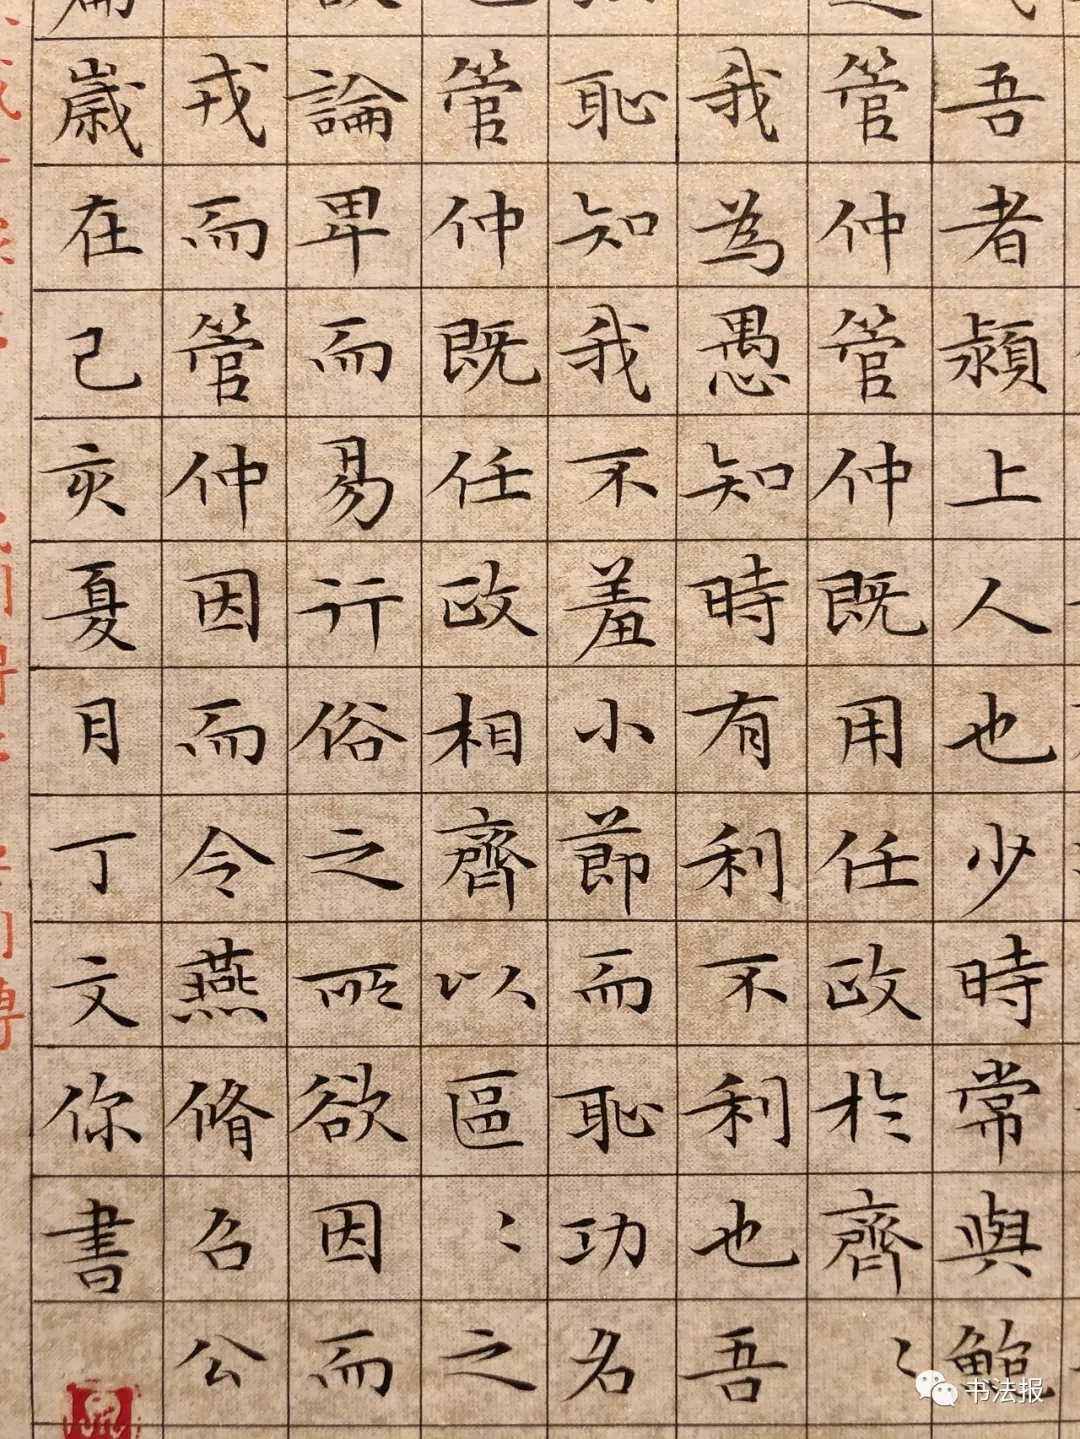 吾者潁上人也少時常與鮑
管仲管仲既用任政於齊〻
我為愚知時有利不利也吾
恥知我不羞小節而恥功名
管仲既任政相齊以區〻之
論卑而易行俗之所欲因而
戎而管仲因而令燕脩召公
歲在己亥夏月丁文你書
书法报